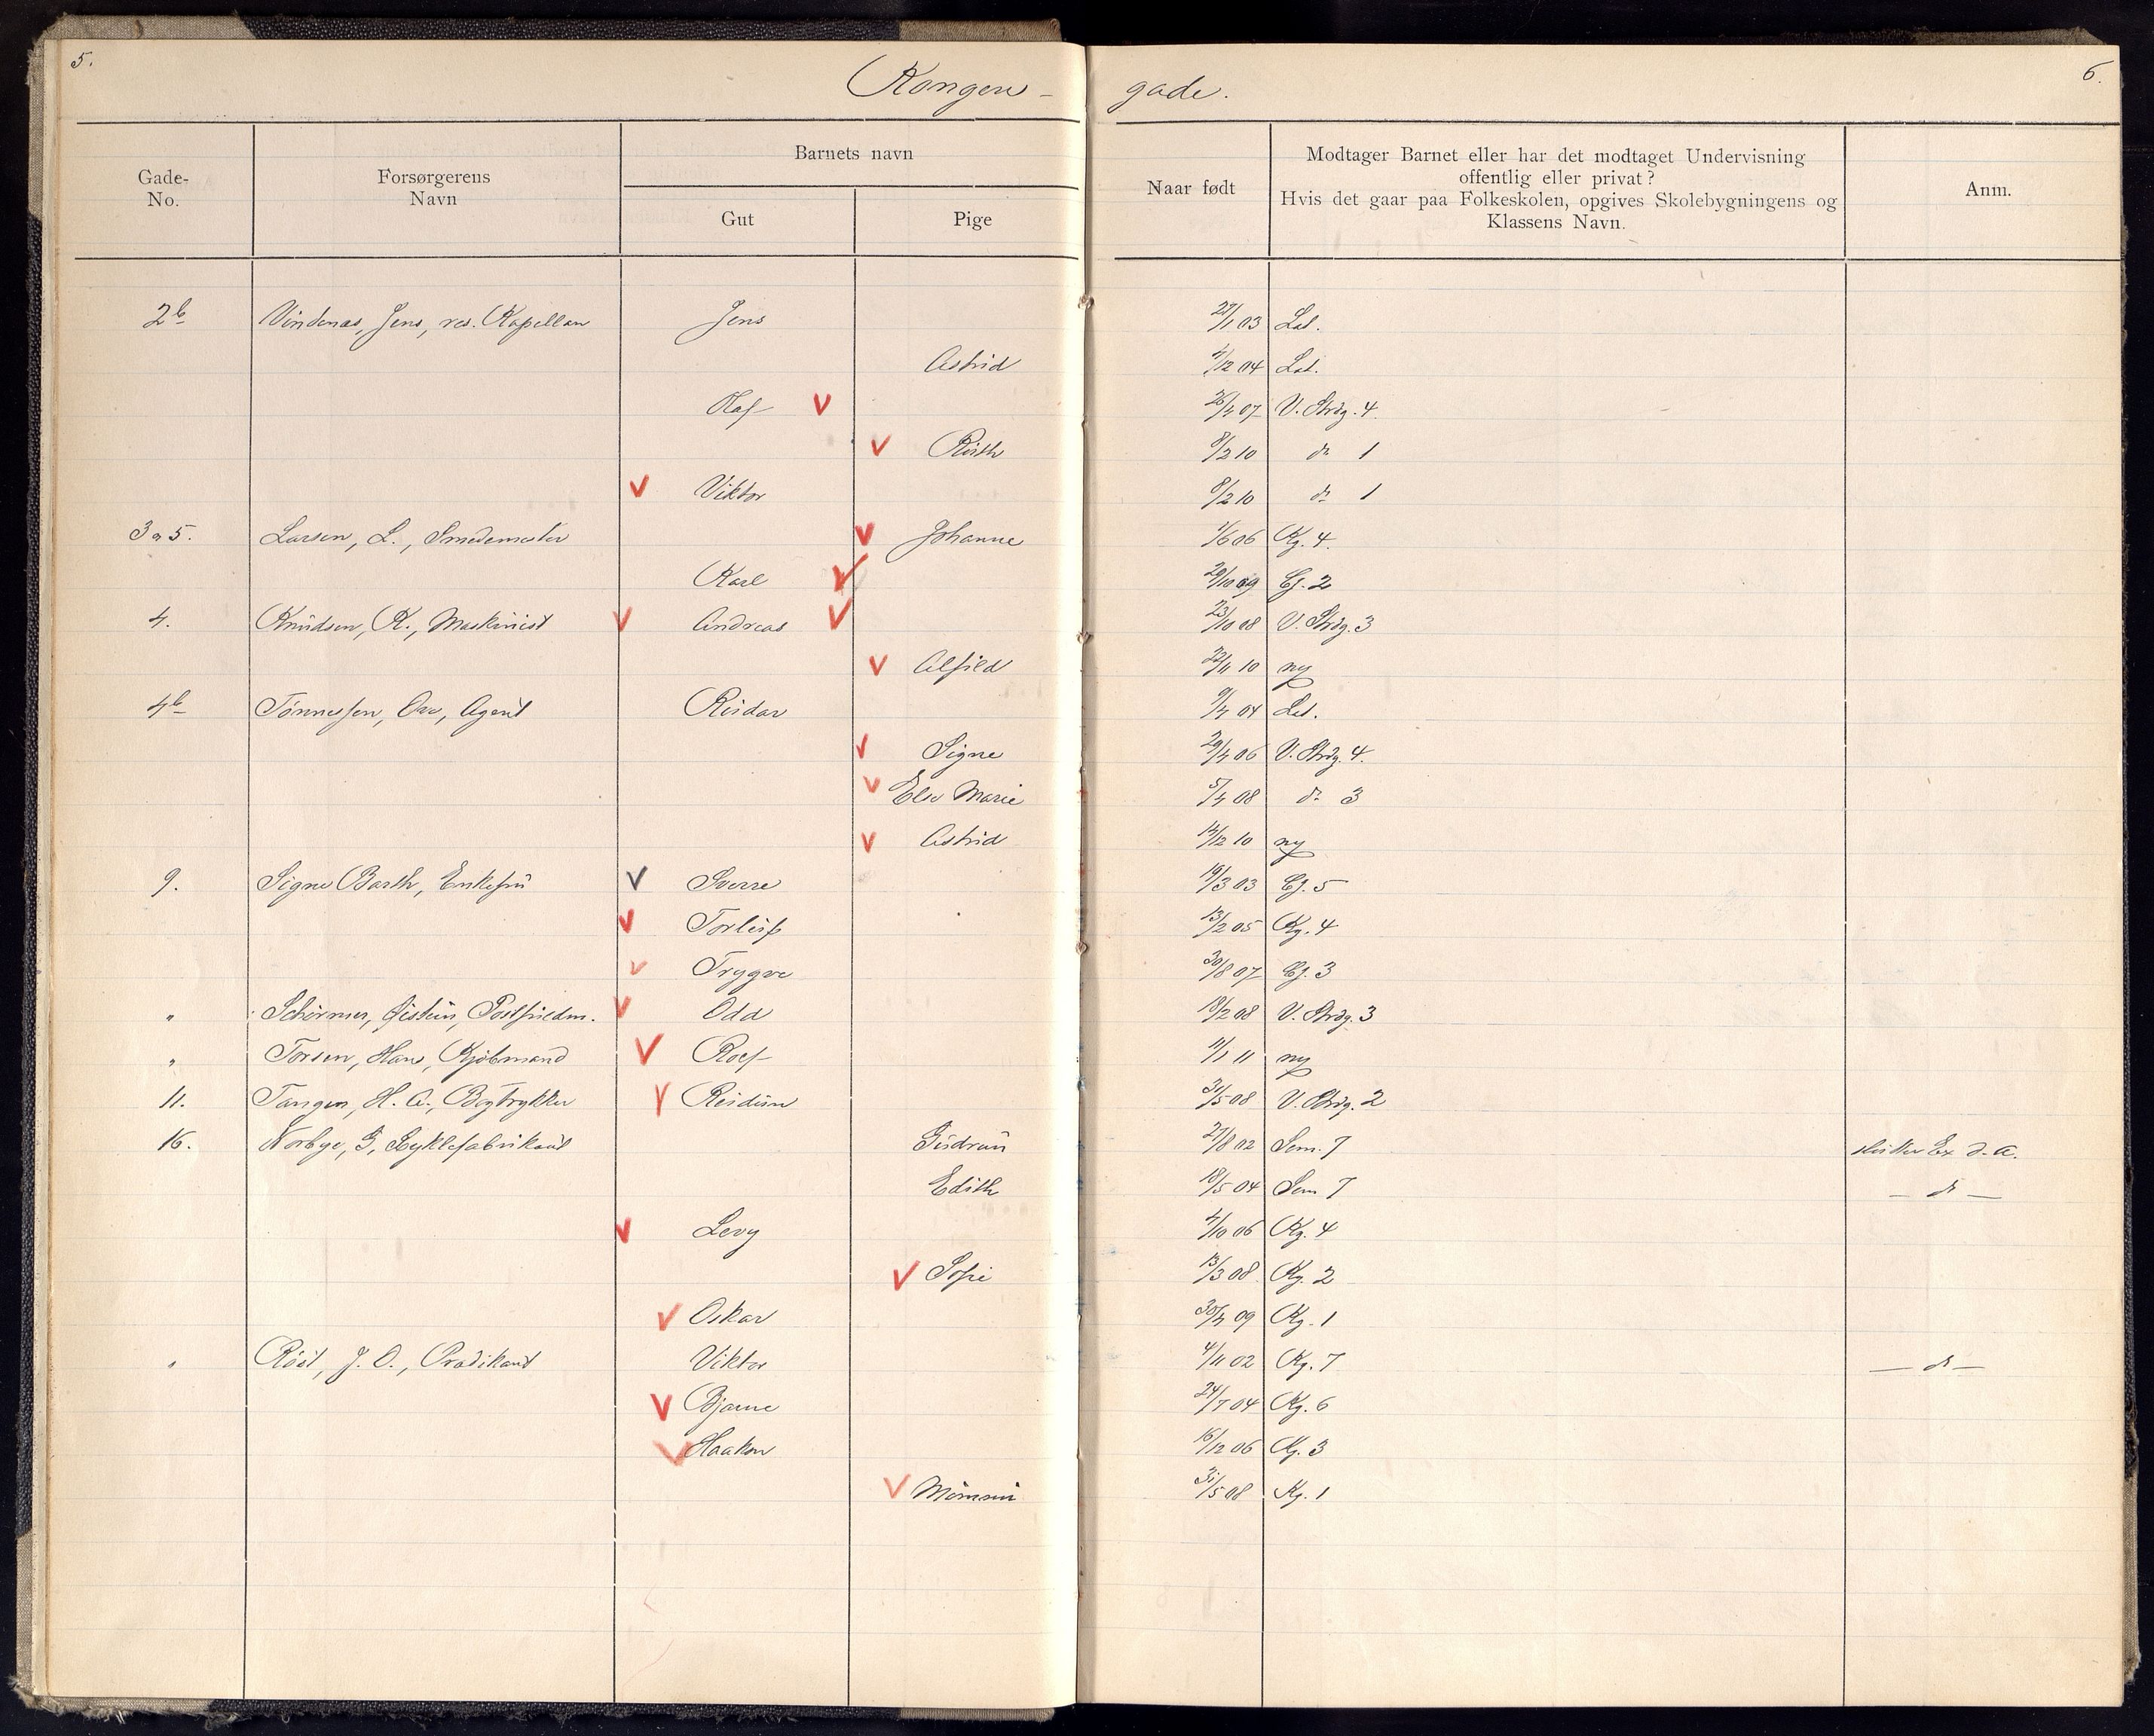 5.
Kongens-
gade.
6.
Gade-
No.
Forsørgerens
Navn
Barnets navn
Gut
Pige
Naar født
Modtager Barnet eller har det modtaget Undervisning
offentlig eller privat?
Hvis det gaar paa Folkeskolen, opgives Skolebygningens og
Klassens Navn.
Anm.
2b Vindenæs, Jens, res. Kapellan Jens 27/1 03 Lat.
Astrid 4/12 04 Lat.
Olaf V 26/4 07 V. Strdg. 4.
V Ruth 8/2 10 do 1
V Viktor 8/2 10 do 1
3 og 5. Larsen, L., Smedemester V Johanne 1/6 06 Kg. 4.
Karl V 20/10 09 Ej. 2
4. Knudsen, K., Maskinist V Andreas V 23/10 08 V. Strdg. 3
V Alfild 22/11 10 ny
4b Tönnessen, Ove, Agent Reidar 9/4 04 Lat.
V Signe 29/4 06 V. Strdg. 4.
V Else Marie 5/4 08 do 3
V Astrid 14/12 10 ny
9. Signe Barth, Enkefru V Sverre 19/3 03 Ej. 5
V Torleif 13/2 05 Kg. 4
V Trygve 30/8 07 Ej. 3
" Schirmer, Øistein, V Odd 18/2 08 V. Strdg. 3
" Torsen, Hans, Kjöbmand V Rolf 11/1 11 ny
11. Tangen, H. A., Bogtrykker V Reidun 31/5 08 V. Strdg. 2
16. Norbye, G, Cyklefabrikant Gudrun 27/8 02 Sem. 7 slutter Ex d. a.
Edith 18/5 04 Sem 7 — do —
V Levy 4/10 06 Kg. 4
V Sofie 13/3 08 Kg. 2
V Oskar 30/4 09 Kg. 1
" Röst, J. O., Prædikant Viktor 4/11 02 Kg. 7 — do —
V Bjarne 24/7 04 Kg. 6
V Haakon 16/12 06 Kg. 3
V Mimmi 31/5 08 Kg. 1